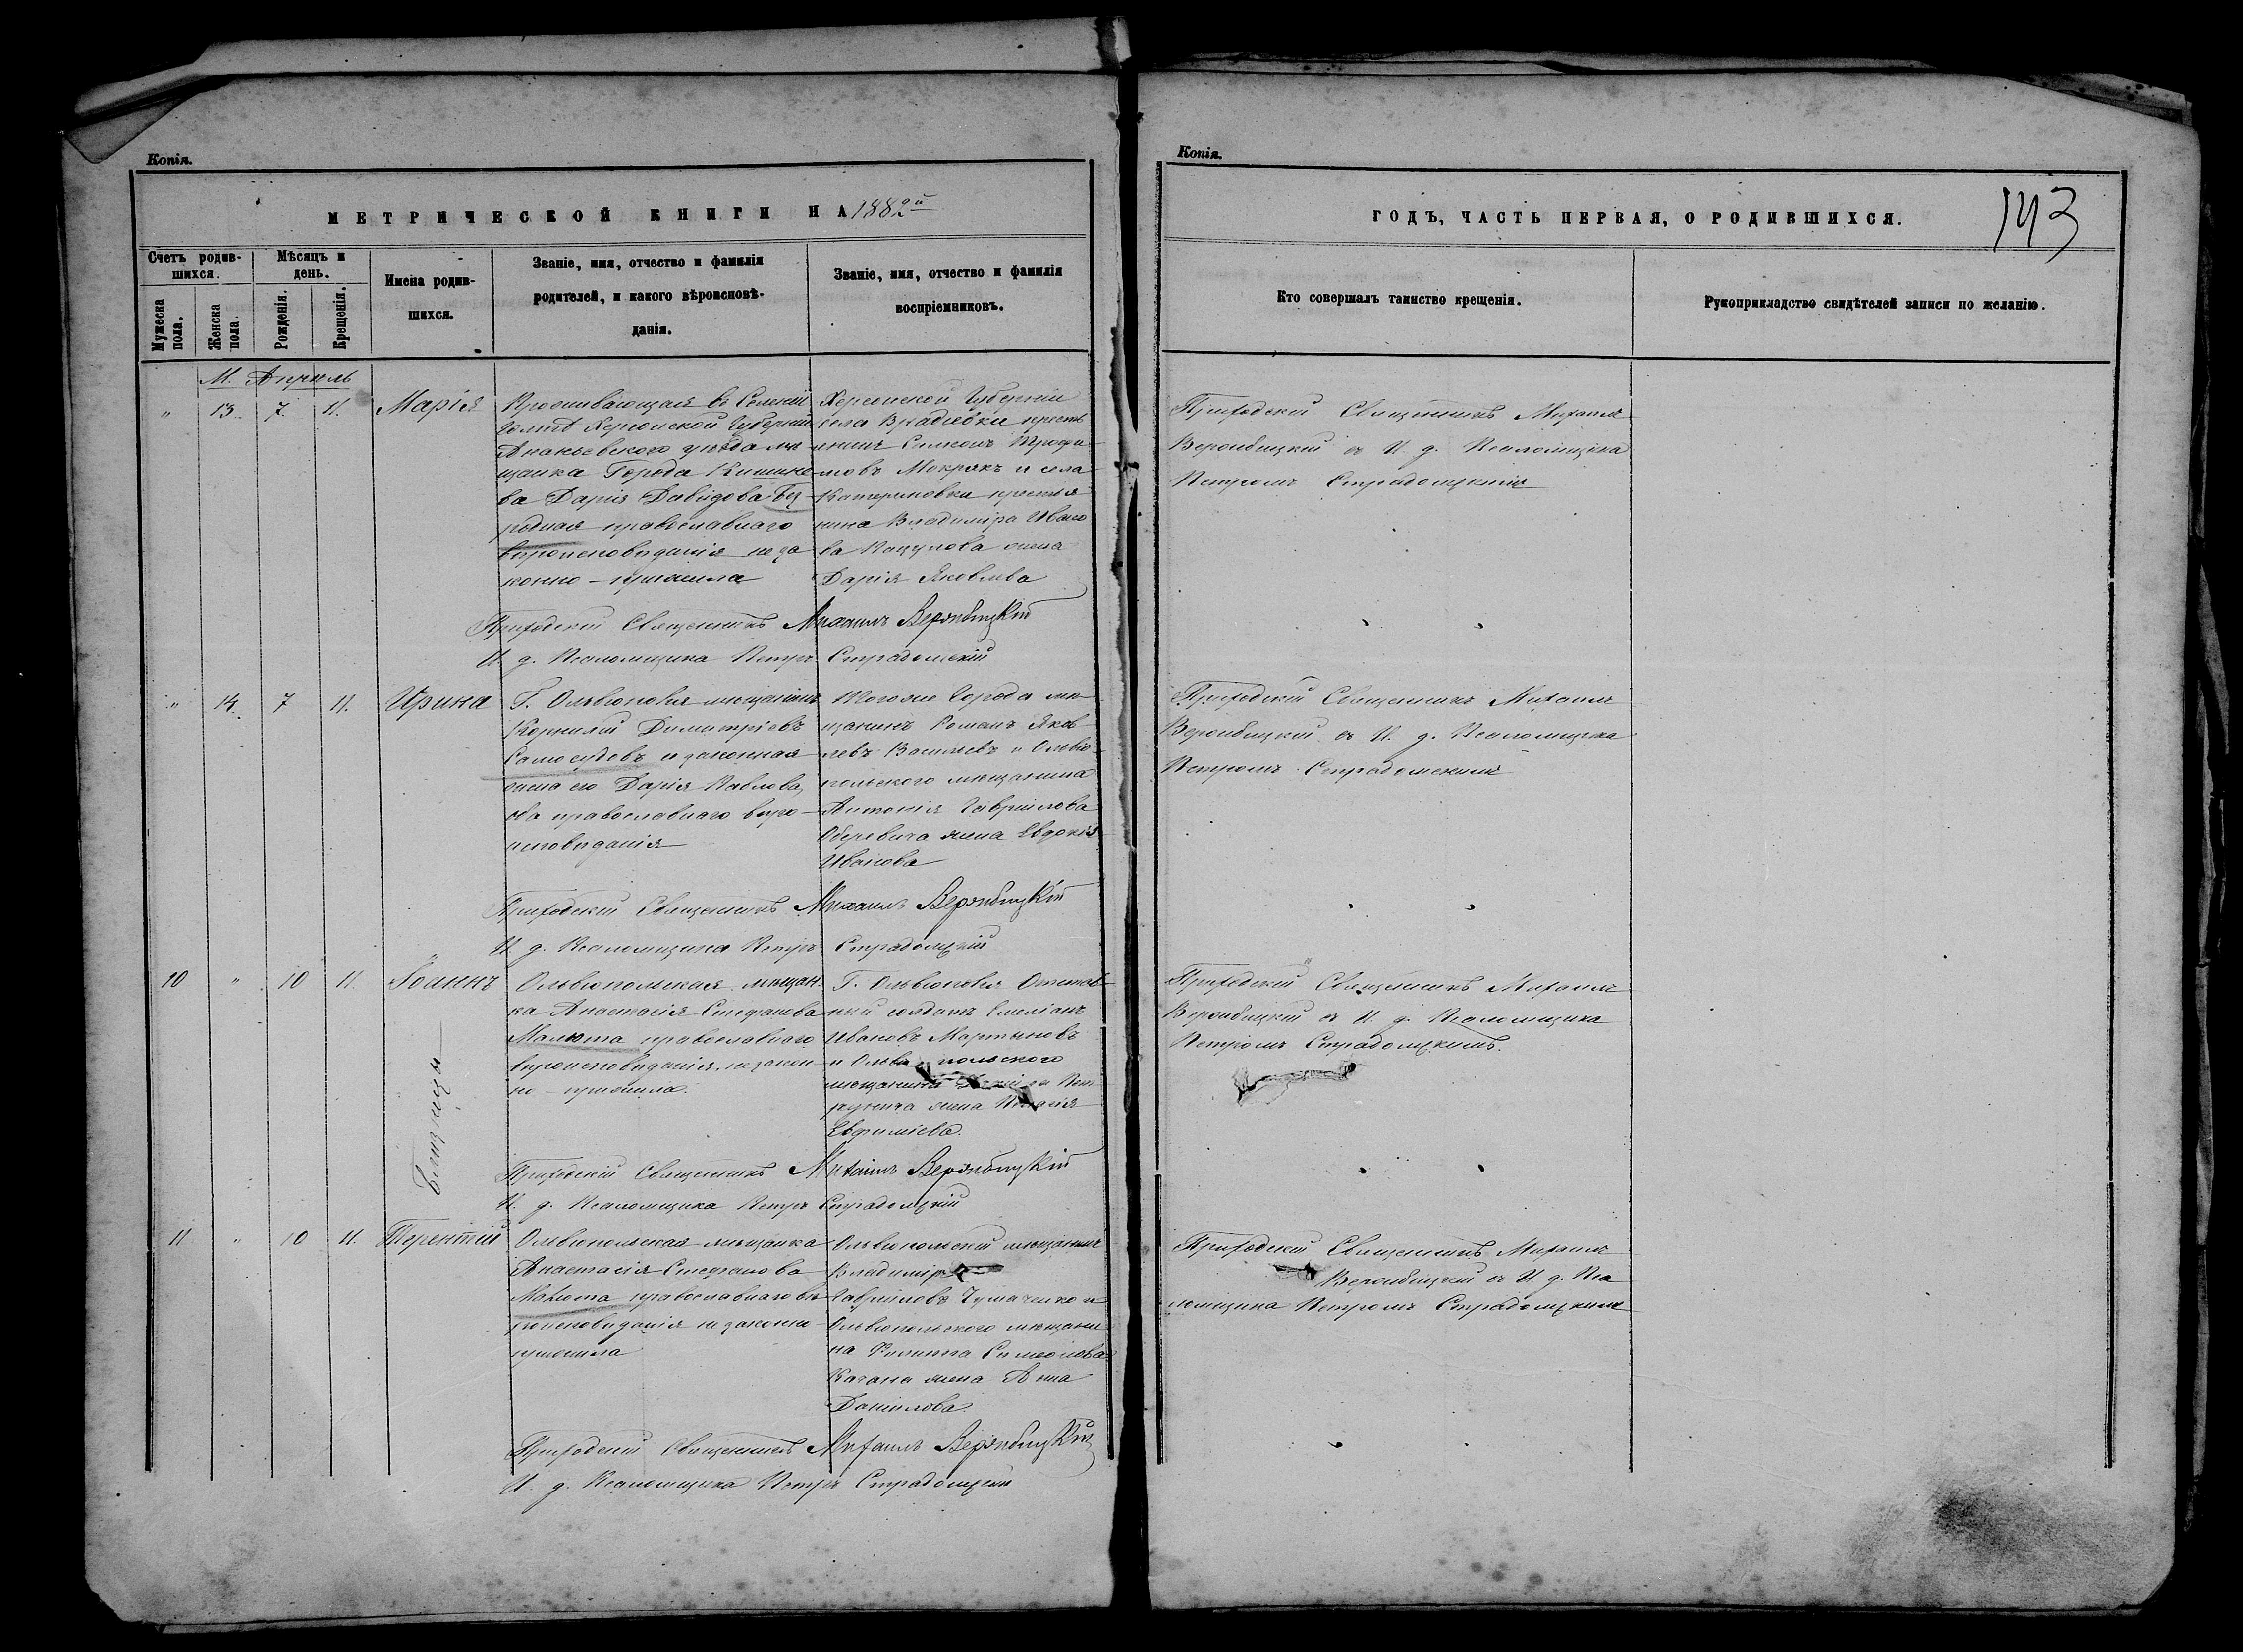 Копія.
МЕТРИЧЕСКОЙ КНИГИ НА 1882й
Счетъ родив-
шихся.
Мужеска пола.
Женска пола.
Мѣсяцъ и
день.
Рожденія.
Крещенія.
Имена родив-
шихся.
Званіе, имя, отчество и фамилія
родителей, и какого вѣроисповѣ-
данія.
Званіе, имя, отчество и фамилія
воспріемниковъ.
М. Апрель
" 13. 7. 11. Марія
Проживающая въ
Херсонской Губерніи
Ананьевского уезда ме
щанка Города Кишине
ва Дарія Давидова
православнаго
вероисповеданія неза
конно-прижила
Херсонской Губерніи
села Врадіевки кресть
янинъ Симеонъ Трофи
мовъ Мокрякъ и села
Катериновки крестья
нина Владиміра Ивано
ва жена
Дарія Яковлева
Приходскій Священникъ Михаилъ Вержбицкій
И. д. Псаломщика Петръ Страдомскій
" 14. 7 11. Ирина
Г. Ольвіополя мещанинъ
Корнилій Димитріевъ
Самосудовъ и законная
жена его Дарія Павлова,
оба православнаго веро-
исповеданія
Тогоже Города ме-
щанинъ Романъ Яков-
левъ Васильевъ и Ольвіо-
польского мещанина
Антонія Гавріилова
жена Евдокія
Иванова
Приходскій Священникъ Михаилъ Вержбицкій
И. д. Псаломщика Петръ Страдомскій
10 " 10 11. Іоаннъ
Близнецы
Ольвіопольская мещан-
ка Анастасія Стефанова
Малюта православнаго
вероисповеданія, незакон-
но-прижила.
Г. Ольвіополя Отстав-
ный солдатъ Емеліанъ
Ивановъ Мартыновъ
и Ольвіопольского
мещанина
жена
Евфиміева.
Приходскій Священникъ Михаилъ Вержбицкій
И. д. Псаломщика Петръ Страдомскій
11 " 10 11. Терентій
Ольвіопольская мещанка
Анастасія Стефанова
Малюта православнаго ве
роисповеданія незаконно-
прижила
Ольвіопольскій мещанинъ
Владиміръ
Гавріиловъ Чумаченко и
Ольвіопольского мещани
на Филиппа Симеонова
Качана жена Анна
Даніилова.
Приходскій Священникъ Михаилъ Вержбицкій
И. д. Псаломщика Петръ Страдомскій
Копія.
143
ГОДЪ, ЧАСТЬ ПЕРВАЯ, О РОДИВШИХСЯ.
Кто совершалъ таинство крещенія.
Рукоприкладство свидѣтелей записи по желанію.
Приходскій Священникъ Михаилъ
Вержбицкій съ И. д. Псаломщика
Петромъ Страдомскимъ
Приходскій Священникъ Михаилъ
Вержбицкій съ И. д. Псаломщика
Петромъ Страдомскимъ
Приходскій Священникъ Михаилъ
Вержбицкій съ И. д. Псаломщика
Петромъ Страдомскимъ.
Приходскій Священникъ Михаилъ
Вержбицкій съ И. д. Пса
ломщика Петромъ Страдомскимъ